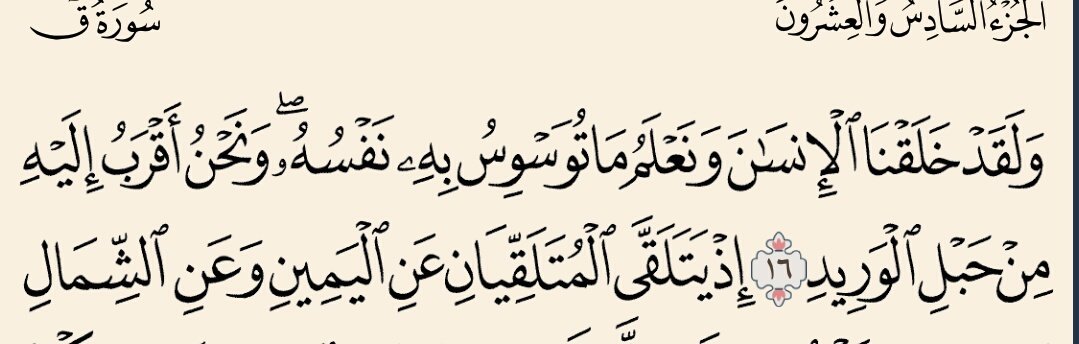 الجُزْءُ السَّادِسُ وَالعِشْرُونَ
سُورَةُ قٓ
وَلَقَدْ خَلَقْنَا ٱلْإِنسَـٰنَ وَنَعْلَمُ مَا تُوَسْوِسُ بِهِۦ نَفْسُهُۥ ۖ وَنَحْنُ أَقْرَبُ إِلَيْهِ
مِنْ حَبْلِ ٱلْوَرِيدِ ١٦ إِذْ يَتَلَقَّى ٱلْمُتَلَقِّيَانِ عَنِ ٱلْيَمِينِ وَعَنِ ٱلشِّمَالِ